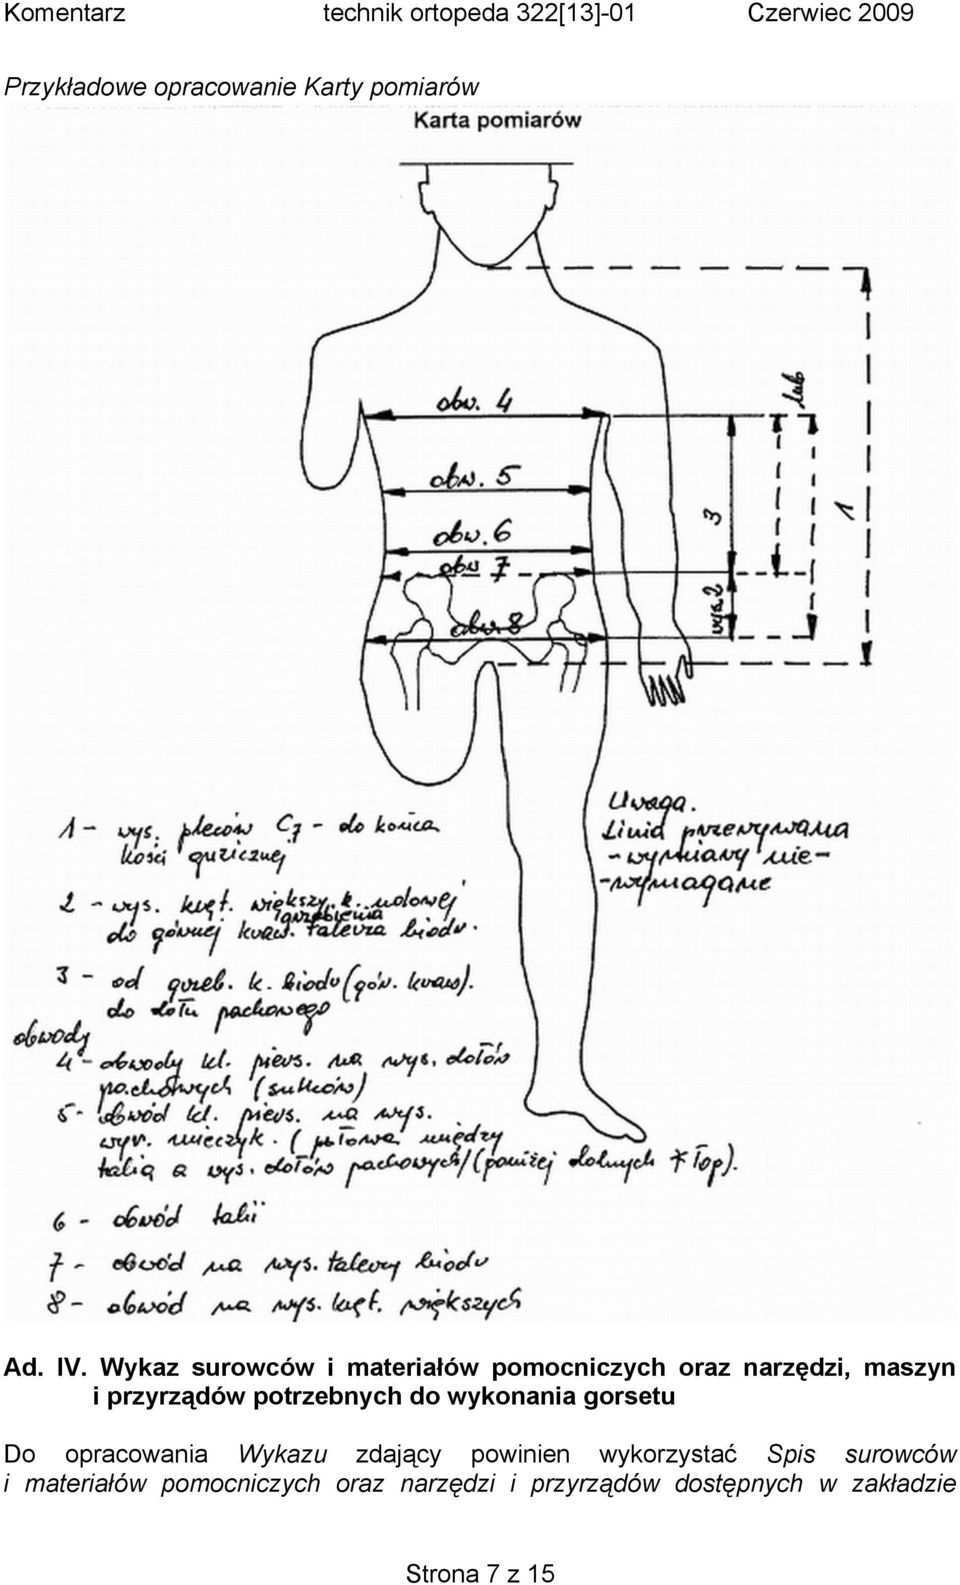 Komentarz technik ortopeda 322[13]-01 Czerwiec 2009
Przykładowe opracowanie Karty pomiarów
Karta pomiarów
obw. 4
lub
obw. 5
3
1
obw. 6
obw 7
wys. 2
obw. 8
Uwaga.
Linia przerywana
-wymiary nie-
-wymagane
1- wys. pleców C7 - do końca
kości guzicznej
2 - wys. kręt. większy k. udowej
do górnej kraw. grzebienia talerza biodr.
3 - od grzeb. k. biodr (gór. kraw).
do dołu pachowego
obwody
4 - obwody kl. piers. na wys. dołów
pachowych (sutków)
5- obwód kl. piers. na wys.
wyr. mieczyk. (połowa między
talią a wys. dołów pachowych/(poniżej dolnych *łop).
6 - obwód talii
7 - obwód na wys. talerzy biodr
8 - obwód na wys. kręt. większych
Ad. IV. Wykaz surowców i materiałów pomocniczych oraz narzędzi, maszyn
i przyrządów potrzebnych do wykonania gorsetu
Do opracowania Wykazu zdający powinien wykorzystać Spis surowców
i materiałów pomocniczych oraz narzędzi i przyrządów dostępnych w zakładzie
Strona 7 z 15